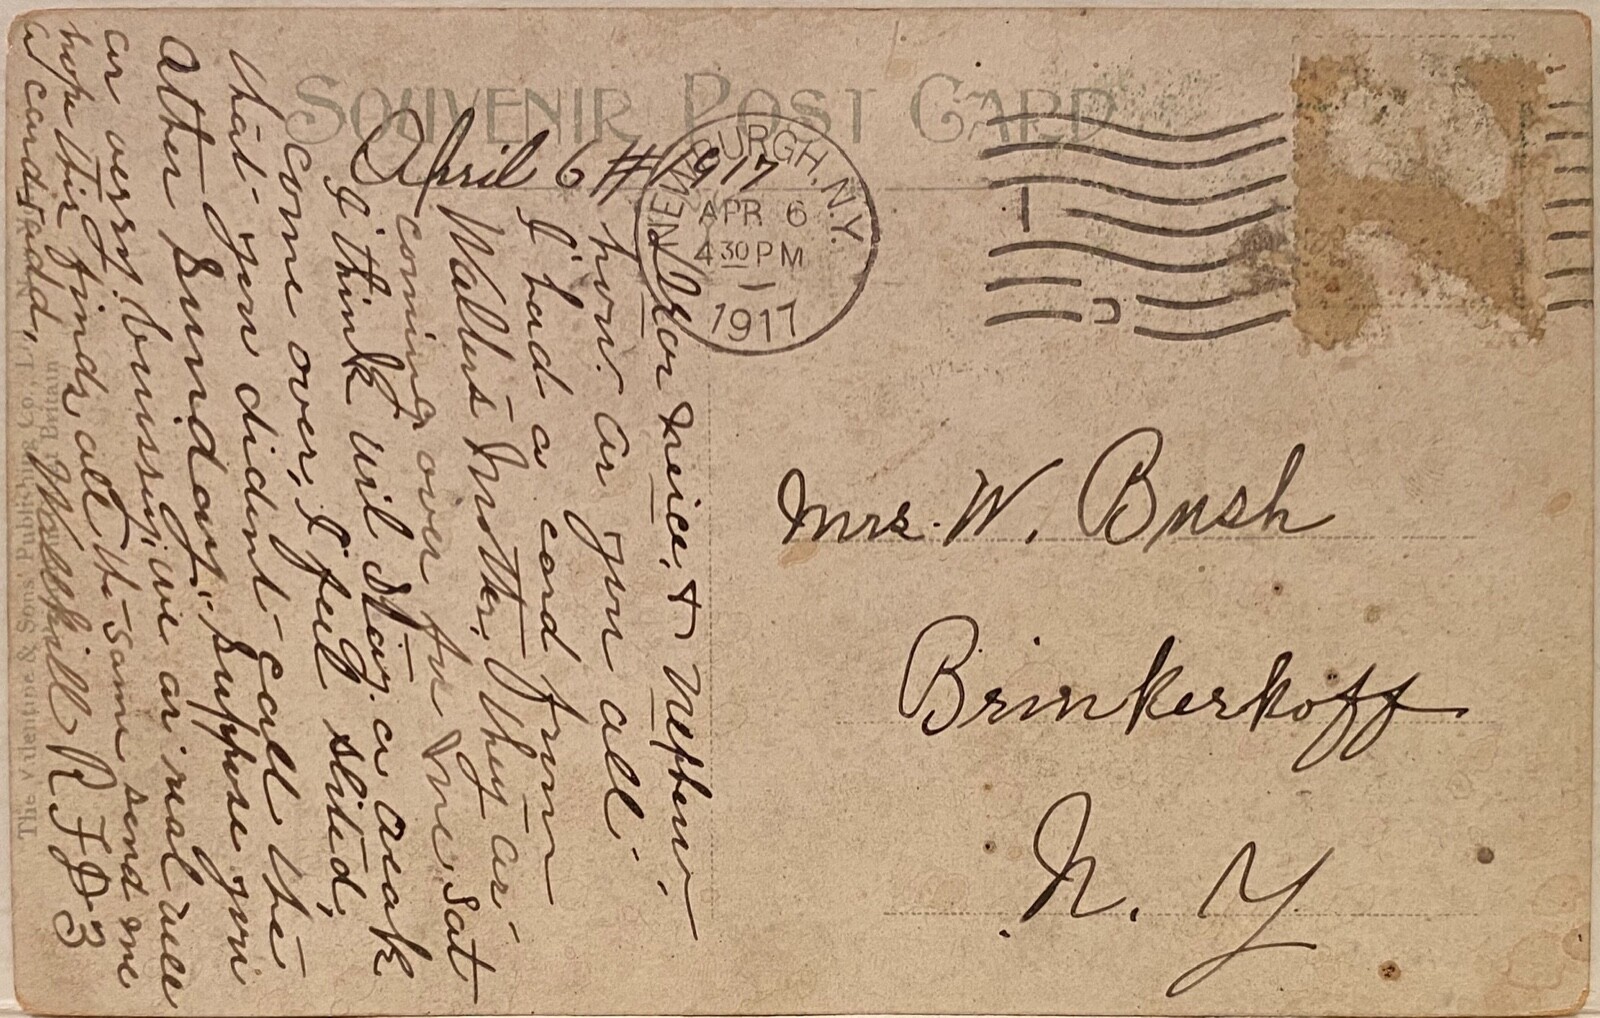 SOUVENIR POST CARD
April 6th 1917
NEWBURGH, N.Y.
APR 6
4 30 PM
1917
Dear neice, & Nepheu.
how ar you all
I had a card from
Walters Mother, they ar
coming over for me, Sat
I think wil Stay a weak
come over, I feel slited,
that you dident call the
other Sunday, Suppose you
ar verry bussy, we ar real well
hope this finds all the same send me
a card
Wallkill R F D 3
The Valentine & Sons' Publishing Co., Ltd.
Britain
Mrs. W. Bush
Brinkerkoff
N. Y.